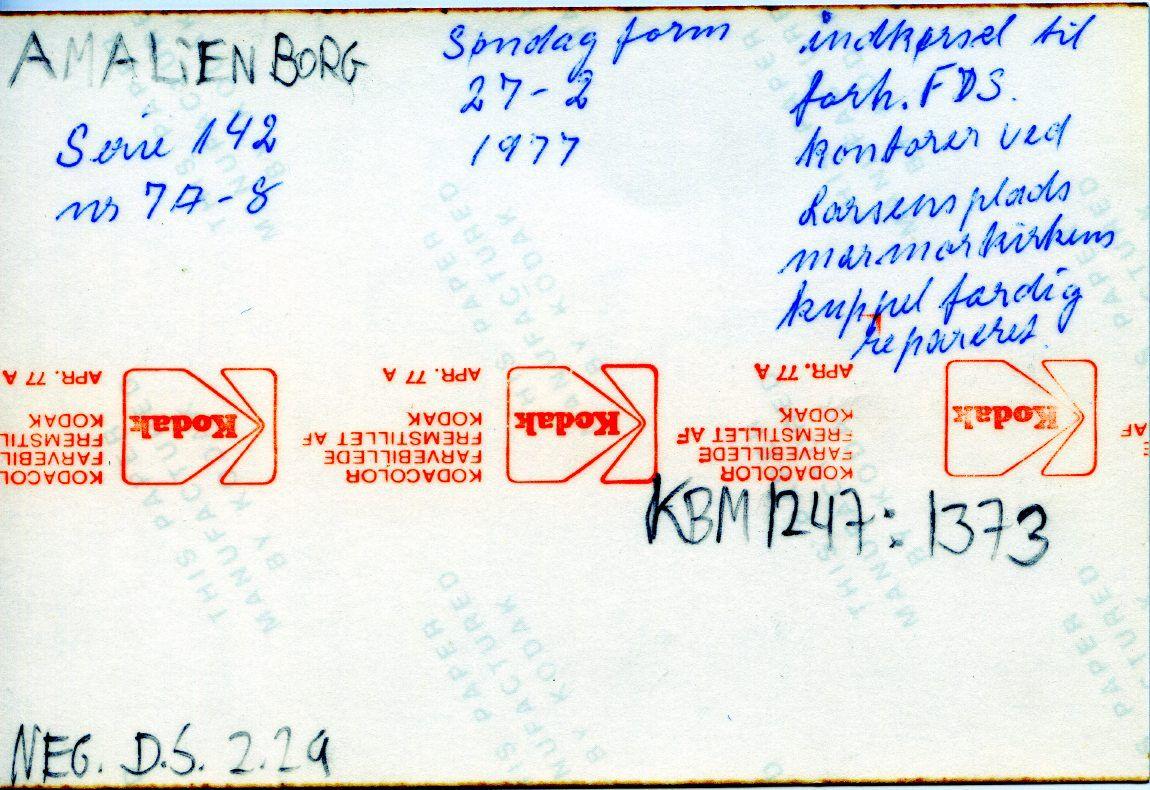 AMALIENBORG
Serie 142
nr 7A-8
Søndag form
27-2
1977
indkørsel til
forh. FDS.
kontorer ved
Larsensplads
marmorkirkens
kuppel færdig
repareret.
APR. 77 A
KODAK
FREMSTILLET AF
FARVEBILLEDE
KODACOLOR
Kodak
APR. 77 A
KODAK
FREMSTILLET AF
FARVEBILLEDE
KODACOLOR
Kodak
APR. 77 A
KODAK
FREMSTILLET AF
FARVEBILLEDE
KODACOLOR
Kodak
AF
KBM 1247: 1373
THIS PAPER
MANUFACTURED
BY KODAK
NEG. D.S. 2.29